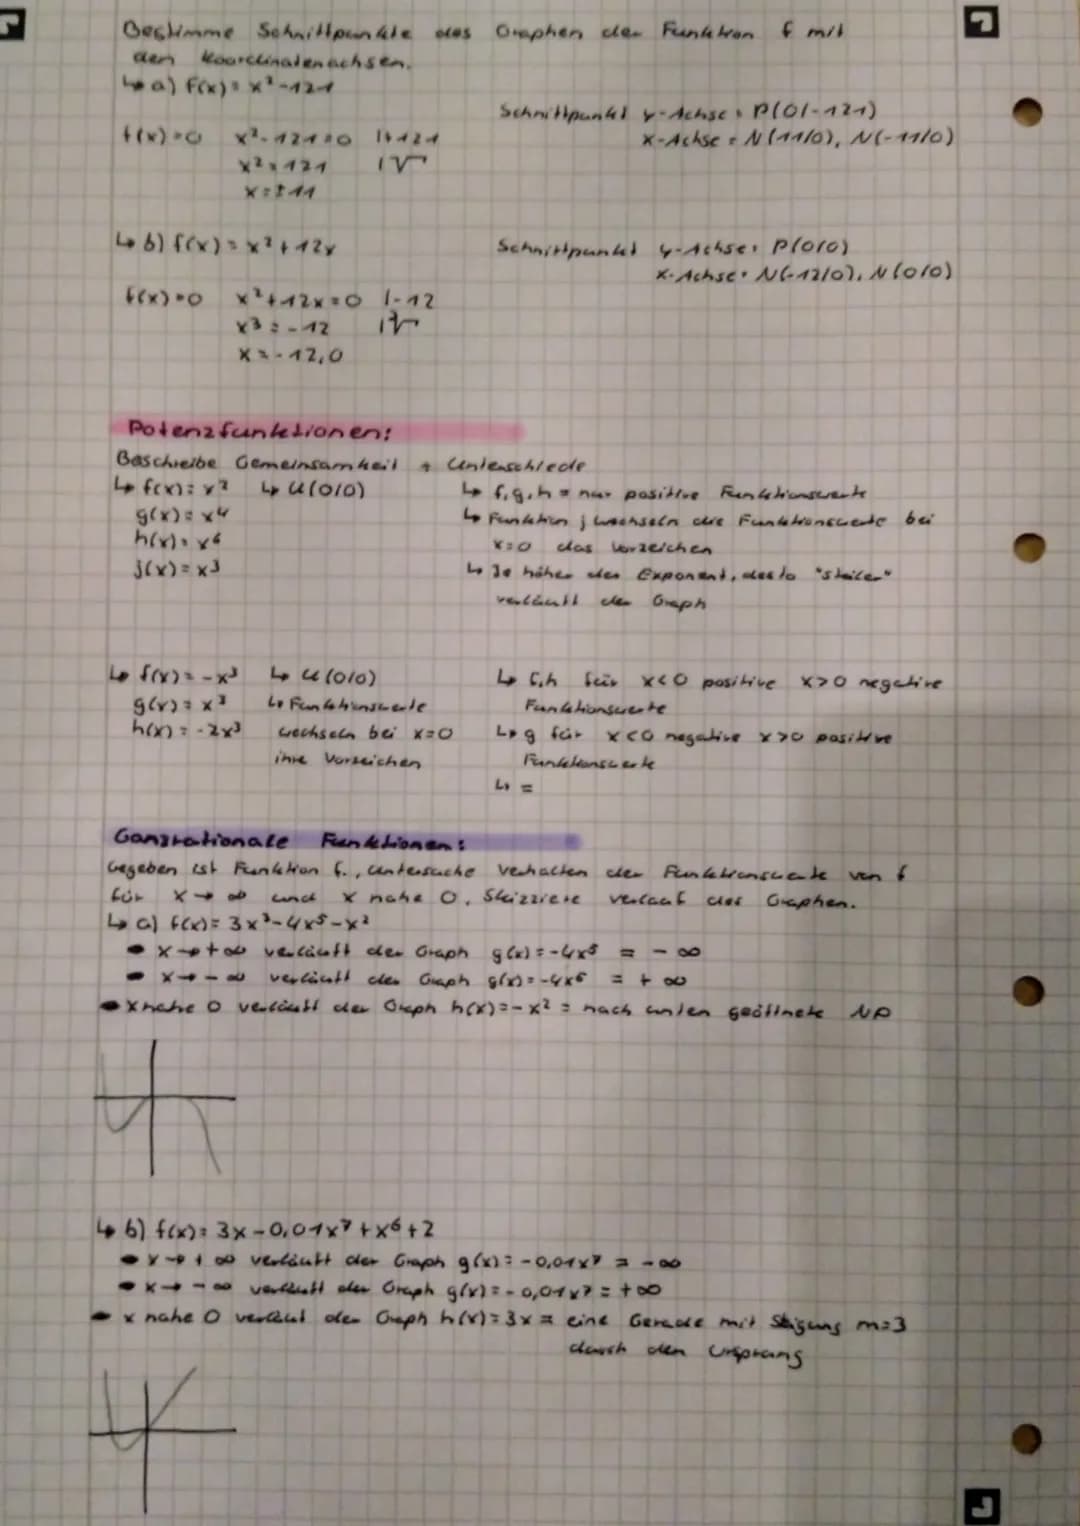 Bestimme Schnittpunkte des Graphen der Funktion f mit
den Koordinatenachsen.
↳ a) f(x) = x² - 121
Schnittpunkt y-Achse: P(0/-121)
f(x)=0 x²-121=0 |+121 x-Achse = N(11/0), N(-11/0)
x²=121 |√
x=±11
↳ b) f(x) = x² + 12x Schnittpunkt y-Achse: P(0/0)
x-Achse: N(-12/0), N(0/0)
f(x)=0 x²+12x=0 |-12
x³=-12 |³√
x=-12,0
Potenzfunktionen:
Beschreibe Gemeinsamkeit + Unterschiede
↳ f(x)=x² ↳ U(0/0) ↳ f,g,h = nur positive Funktionswerte
g(x)=x⁴ ↳ Funktion j wechseln die Funktionswerte bei
h(x)=x⁶ x=0 das Vorzeichen
j(x)=x³ ↳ Je höher der Exponent, desto "steiler"
verläuft der Graph
↳ f(x)=-x³ ↳ U(0/0) ↳ f,h für x<0 positive x>0 negative
g(x)=x³ ↳ Funktionswerte Funktionswerte
h(x)=-2x³ wechseln bei x=0 ↳ g für x<0 negative x>0 positive
ihre Vorzeichen Funktionswerte
↳ =
Ganzrationale Funktionen:
Gegeben ist Funktion f., untersuche Verhalten der Funktionswerte von f
für x→∞ und x nahe 0. Skizziere verlauf des Graphen.
↳ a) f(x)=3x³-4x⁵-x²
• x→+∞ verläuft der Graph g(x)=-4x⁵ = -∞
• x→-∞ verläuft der Graph g(x)=-4x⁵ = +∞
• x nahe 0 verläuft der Graph h(x)=-x² = nach unten geöffnete NP
↳ b) f(x)=3x-0,01x⁷+x⁶+2
• x→+∞ verläuft der Graph g(x)=-0,01x⁷ = -∞
• x→-∞ verläuft der Graph g(x)=-0,01x⁷=+∞
• x nahe 0 verläuf der Graph h(x)=3x = eine Gerade mit Steigung m=3
durch den Ursprung